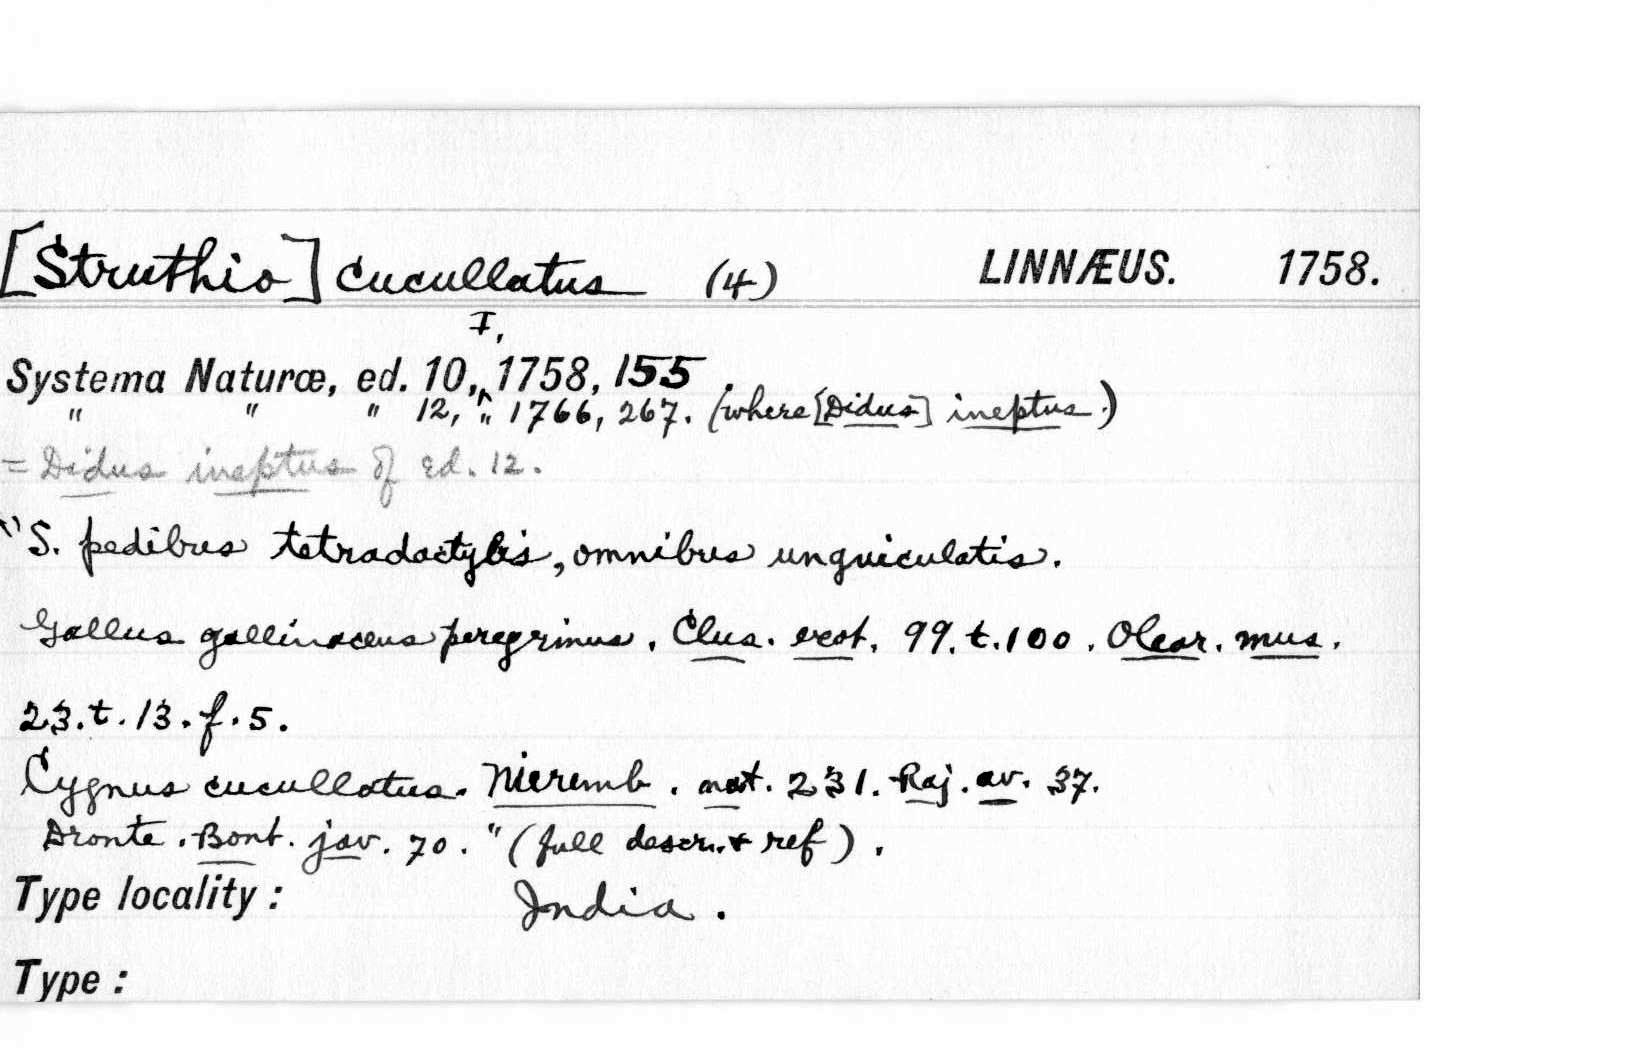 [Struthio] cucullatus (4) LINNÆUS. 1758.
I,
Systema Naturæ, ed. 10,, 1758, 155.
" " " 12, " 1766, 267. (where [Didus] ineptus.)
= Didus ineptus of ed. 12.
"S. pedibus tetradactylis, omnibus unguiculatis.
Gallus gallinaceus peregrinus. Clus. exot. 99. t. 100. Olear. mus.
23. t. 13. f. 5.
Cygnus cucullatus. Nieremb. nat. 231. Raj. av. 37.
Dronte. Bont. jav. 70." (full descr. & ref).
Type locality: India.
Type: